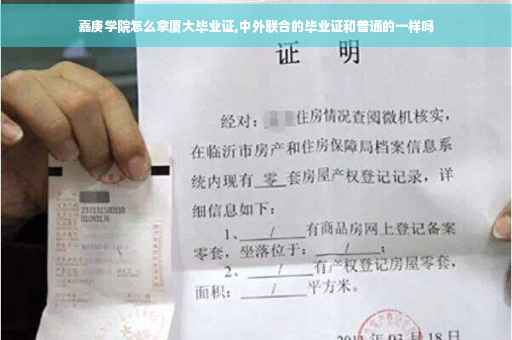 嘉庚学院怎么拿厦大毕业证,中外联合的毕业证和普通的一样吗
证 明
经对: 住房情况查阅微机核实,
在临沂市房产和住房保障局档案信息系
统内现有 零 套房屋产权登记记录, 详
细信息如下:
1、 / 有商品房网上登记备案
零套, 坐落位于: / ;
2、 / 有产权登记房屋零套,
面积: / 平方米。
03月18日